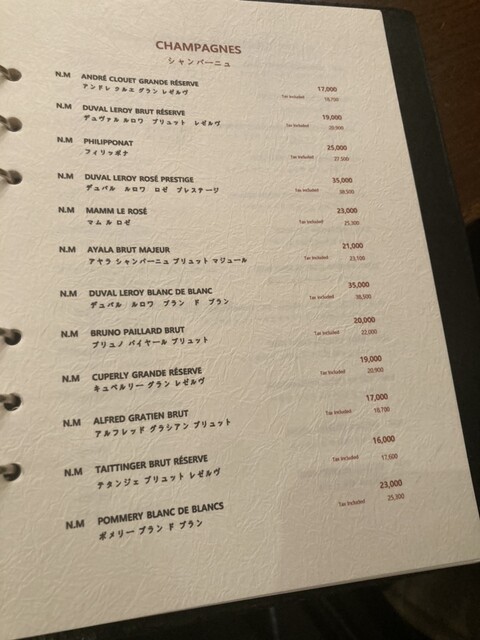 CHAMPAGNES
シャンパーニュ
N.M ANDRÉ CLOUET GRANDE RÉSERVE 17,000
アンドレ クルエ グラン レゼルヴ Tax Included 18,700
N.M DUVAL LEROY BRUT RÉSERVE 19,000
デュヴァル ルロワ ブリュット レゼルヴ Tax Included 20,900
N.M PHILIPPONAT 25,000
フィリッポナ Tax Included 27,500
N.M DUVAL LEROY ROSÉ PRESTIGE 35,000
デュバル ルロワ ロゼ プレステージ Tax Included 38,500
N.M MAMM LE ROSÉ 23,000
マム ル ロゼ Tax Included 25,300
N.M AYALA BRUT MAJEUR 21,000
アヤラ シャンパーニュ ブリュット マジュール Tax Included 23,100
N.M DUVAL LEROY BLANC DE BLANC 35,000
デュバル ルロワ ブラン ド ブラン Tax Included 38,500
N.M BRUNO PAILLARD BRUT 20,000
ブリュノ パイヤール ブリュット Tax Included 22,000
N.M CUPERLY GRANDE RÉSERVE 19,000
キュペルリー グラン レゼルヴ Tax Included 20,900
N.M ALFRED GRATIEN BRUT 17,000
アルフレッド グラシアン ブリュット Tax Included 18,700
N.M TAITTINGER BRUT RÉSERVE 16,000
テタンジェ ブリュット レゼルヴ Tax Included 17,600
N.M POMMERY BLANC DE BLANCS 23,000
ポメリー ブラン ド ブラン Tax Included 25,300